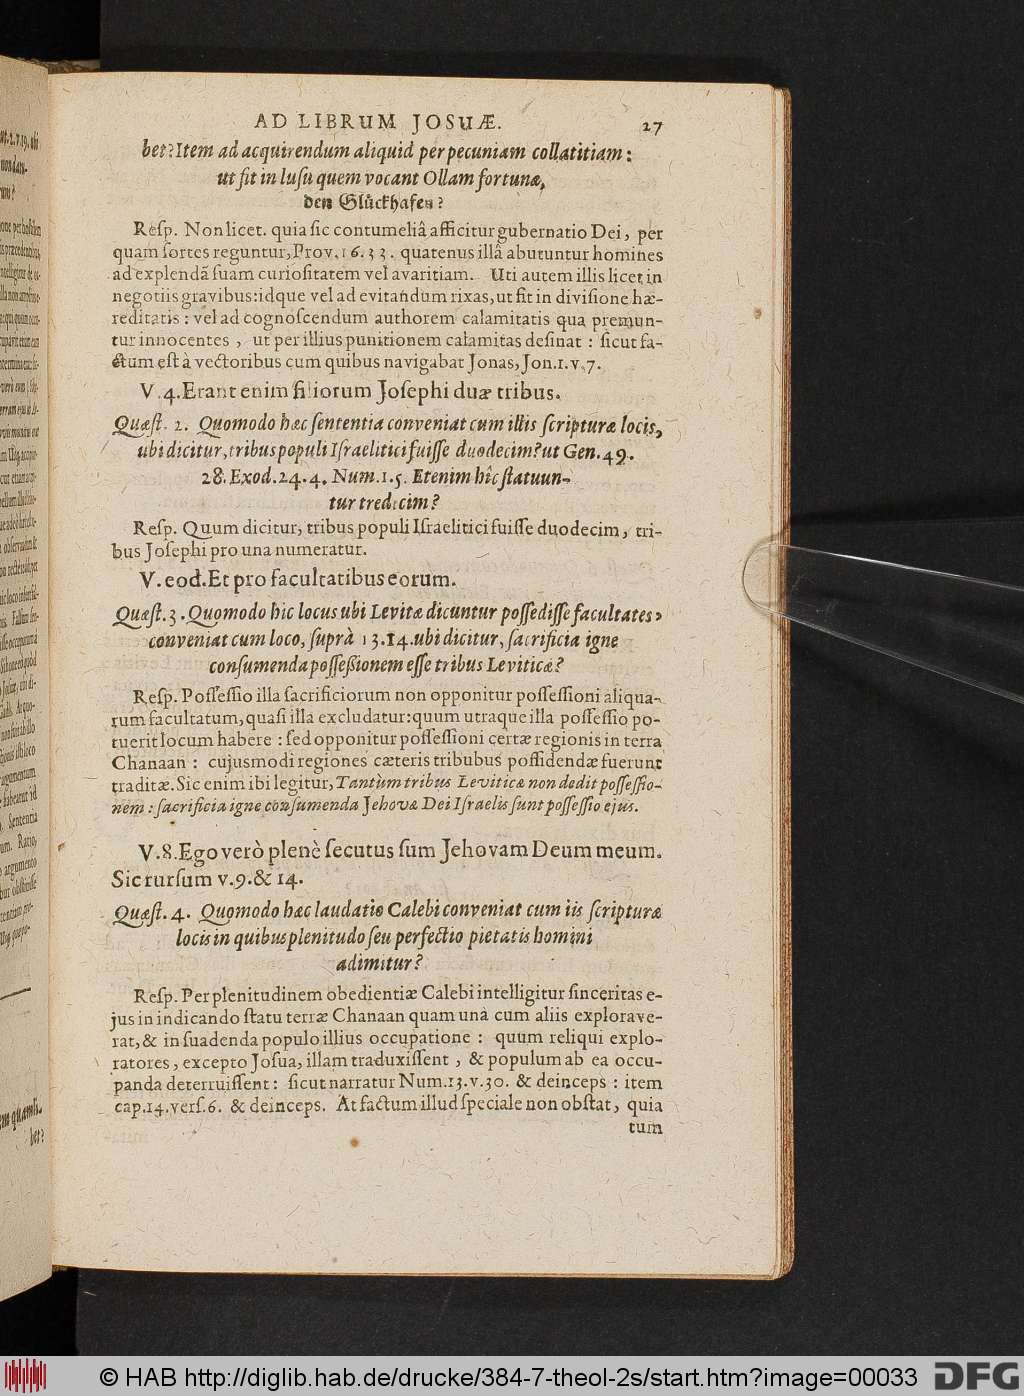 AD LIBRUM JOSUÆ. 27
bet? Item ad acquirendum aliquid per pecuniam collatitiam:
ut fit in lusu quem vocant Ollam fortunæ,
den Glückhafen?
Resp. Non licet. quia sic contumeliâ afficitur gubernatio Dei, per
quam sortes reguntur, Prov. 16. 33. quatenus illâ abutuntur homines
ad explendã suam curiositatem vel avaritiam. Uti autem illis licet in
negotiis gravibus: idque vel ad evitandum rixas, ut fit in divisione hæ-
reditatis: vel ad cognoscendum authorem calamitatis qua premun-
tur innocentes, ut per illius punitionem calamitas desinat: sicut fa-
ctum est à vectoribus cum quibus navigabat Jonas, Jon. 1. v. 7.
V. 4. Erant enim filiorum Josephi duæ tribus.
Quæst. 2. Quomodo hæc sententia conveniat cum illis scripturæ locis,
ubi dicitur, tribus populi Israelitici fuisse duodecim? ut Gen. 49.
28. Exod. 24. 4. Num. 1. 5. Etenim hîc statuun-
tur tredecim?
Resp. Quum dicitur, tribus populi Israelitici fuisse duodecim, tri-
bus Josephi pro una numeratur.
V. eod. Et pro facultatibus eorum.
Quæst. 3. Quomodo hic locus ubi Levitæ dicuntur possedisse facultates,
conveniat cum loco, suprà 13. 14. ubi dicitur, sacrificia igne
consumenda possessionem esse tribus Leviticæ?
Resp. Possessio illa sacrificiorum non opponitur possessioni aliqua-
rum facultatum, quasi illa excludatur: quum utraque illa possessio po-
tuerit locum habere: sed opponitur possessioni certæ regionis in terra
Chanaan: cujusmodi regiones cæteris tribubus possidendæ fuerunt
traditæ. Sic enim ibi legitur, Tantùm tribus Leviticæ non dedit possessio-
nem: sacrificia igne consumenda Jehovæ Dei Israelis sunt possessio ejus.
V. 8. Ego verò plenè secutus sum Jehovam Deum meum.
Sic rursum v. 9. & 14.
Quæst. 4. Quomodo hæc laudatio Calebi conveniat cum iis scripturæ
locis in quibus plenitudo seu perfectio pietatis homini
adimitur?
Resp. Per plenitudinem obedientiæ Calebi intelligitur sinceritas e-
jus in indicando statu terræ Chanaan quam unâ cum aliis explorave-
rat, & in suadenda populo illius occupatione: quum reliqui explo-
ratores, excepto Josua, illam traduxissent, & populum ab ea occu-
panda deterruissent: sicut narratur Num. 13. v. 30. & deinceps: item
cap. 14. vers. 6. & deinceps. At factum illud speciale non obstat, quia
tum
© HAB http://diglib.hab.de/drucke/384-7-theol-2s/start.htm?image=00033
DFG